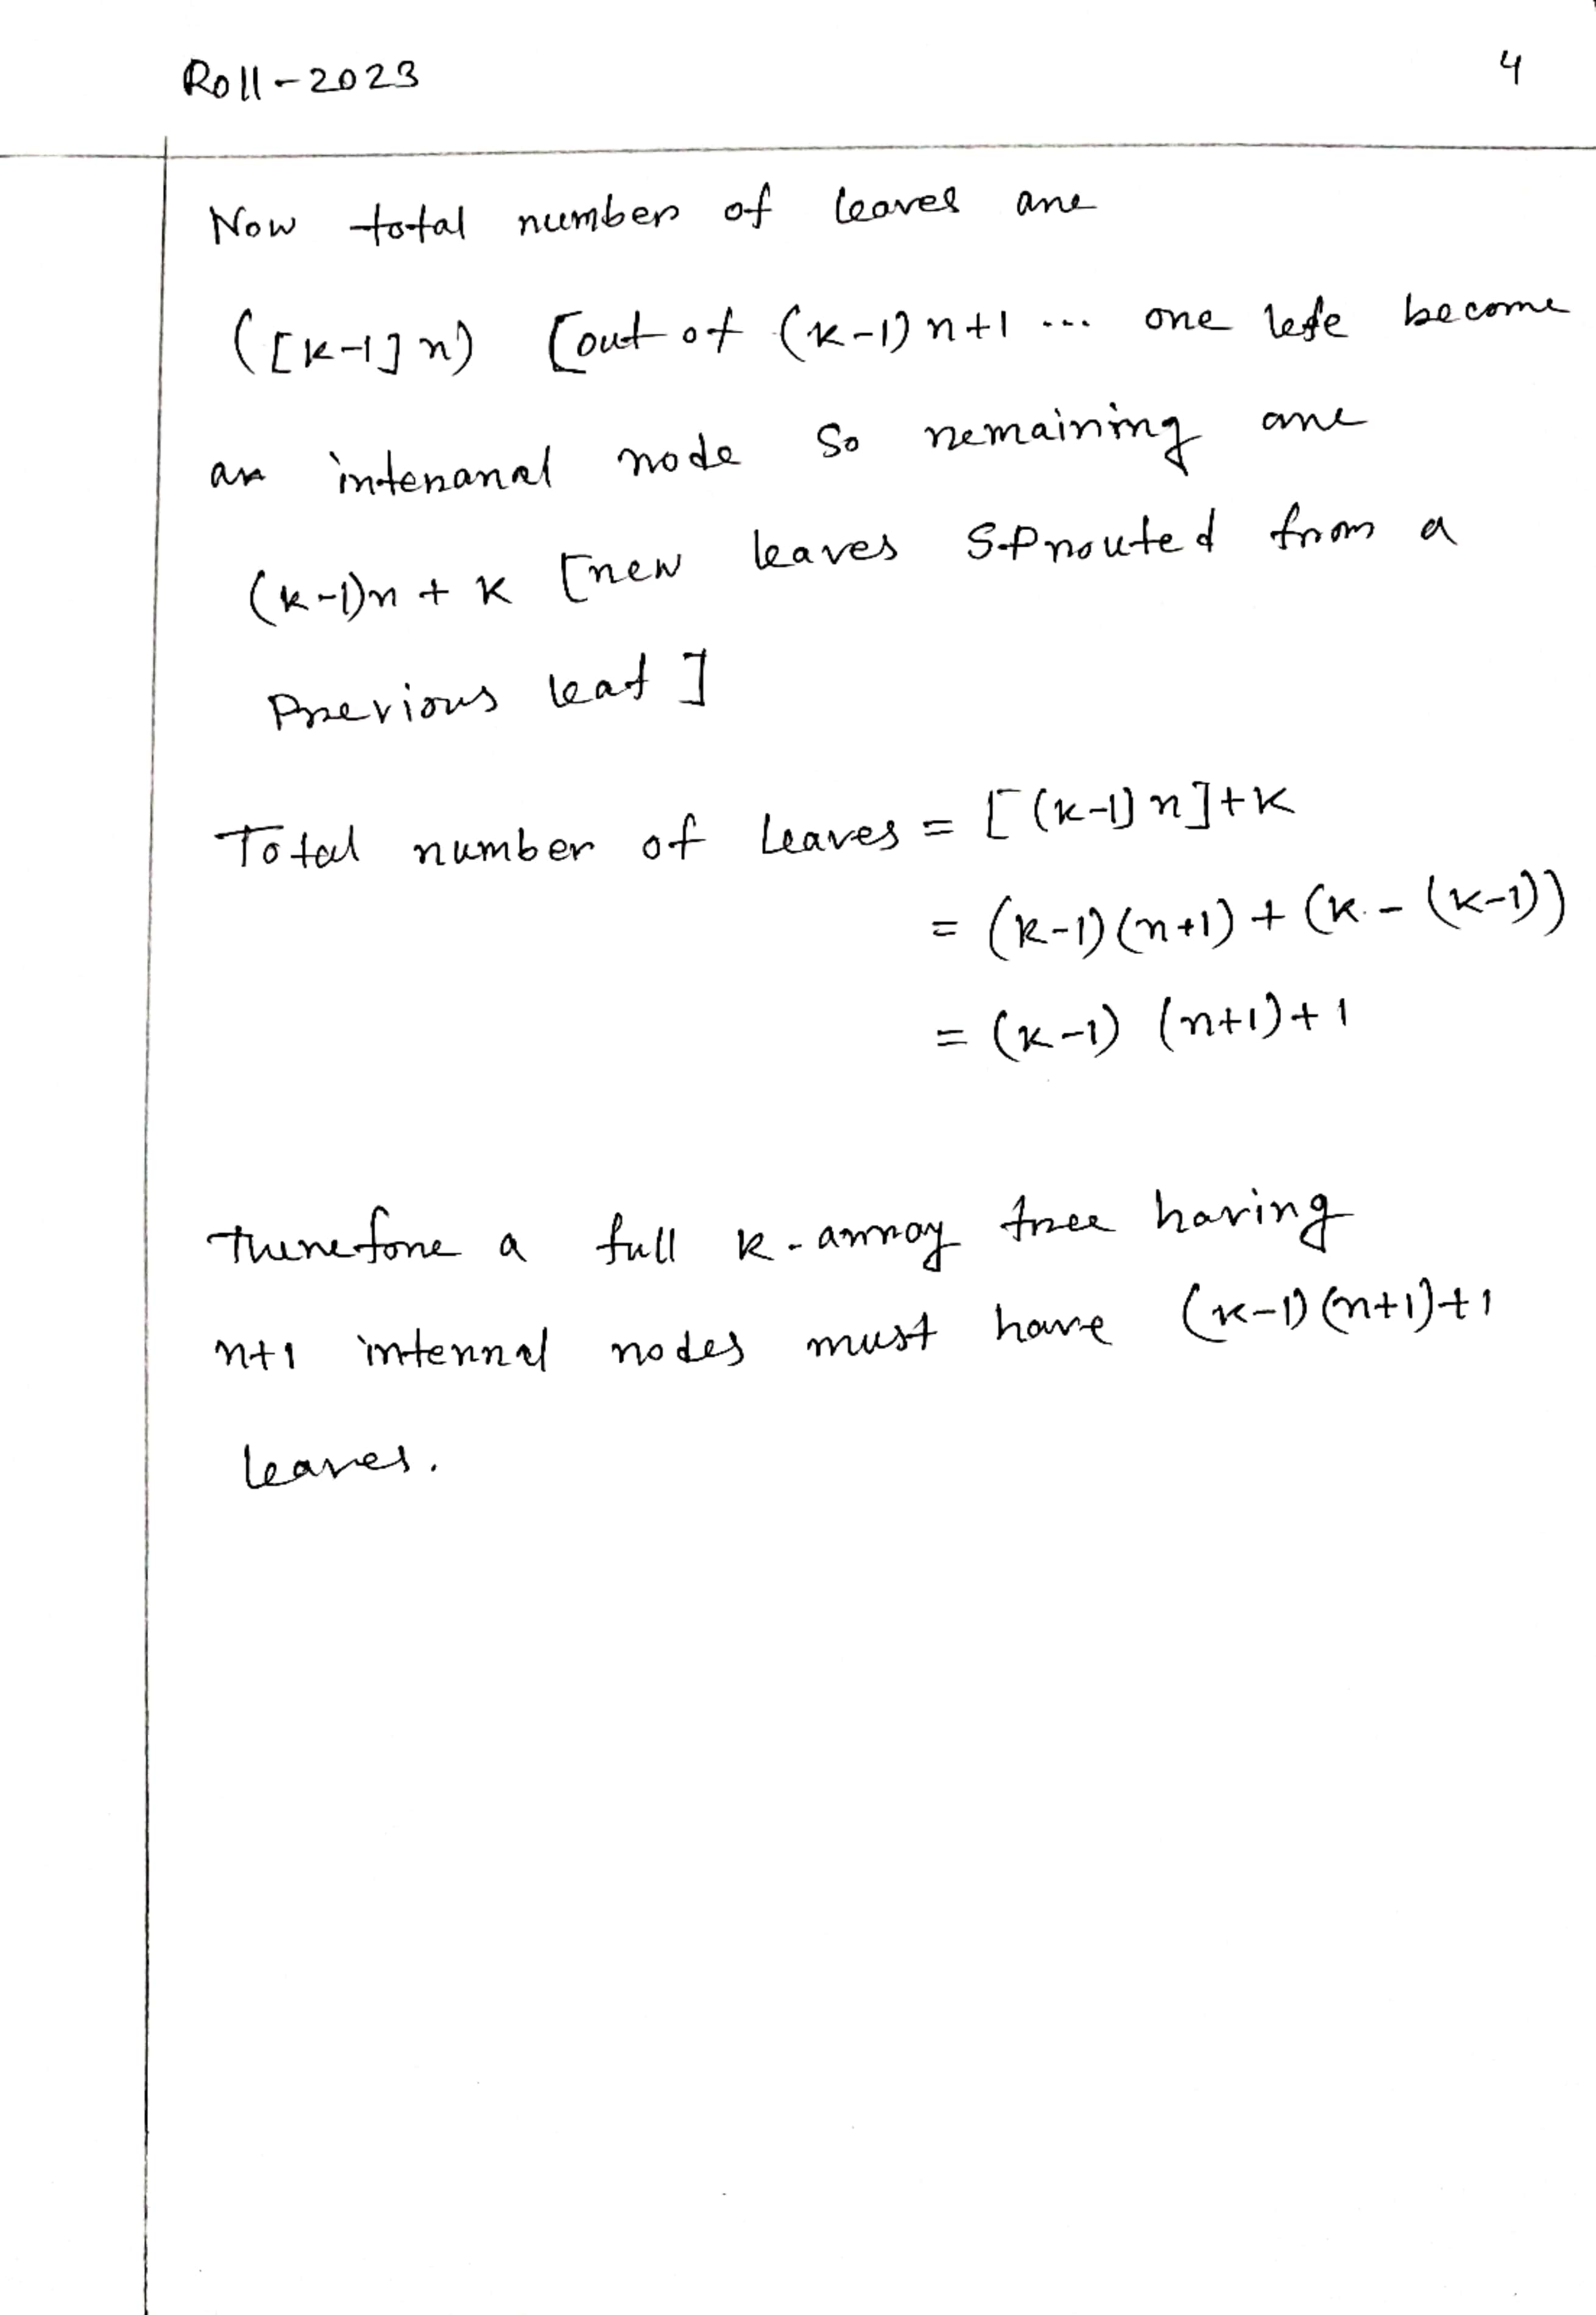 Roll-2023
4
Now total number of leaves are
([k-1]n) [out of (k-1)n+1 ... one lefe become
an intenanal node So remaining are
(k-1)n + k [new leaves sprouted from a
Previous leaf]
Total number of Leaves = [(k-1)n]+k
= (k-1)(n+1) + (k - (k-1))
= (k-1) (n+1)+1
Therefore a full k-array tree having
n+1 internal nodes must have (k-1)(n+1)+1
leaves.